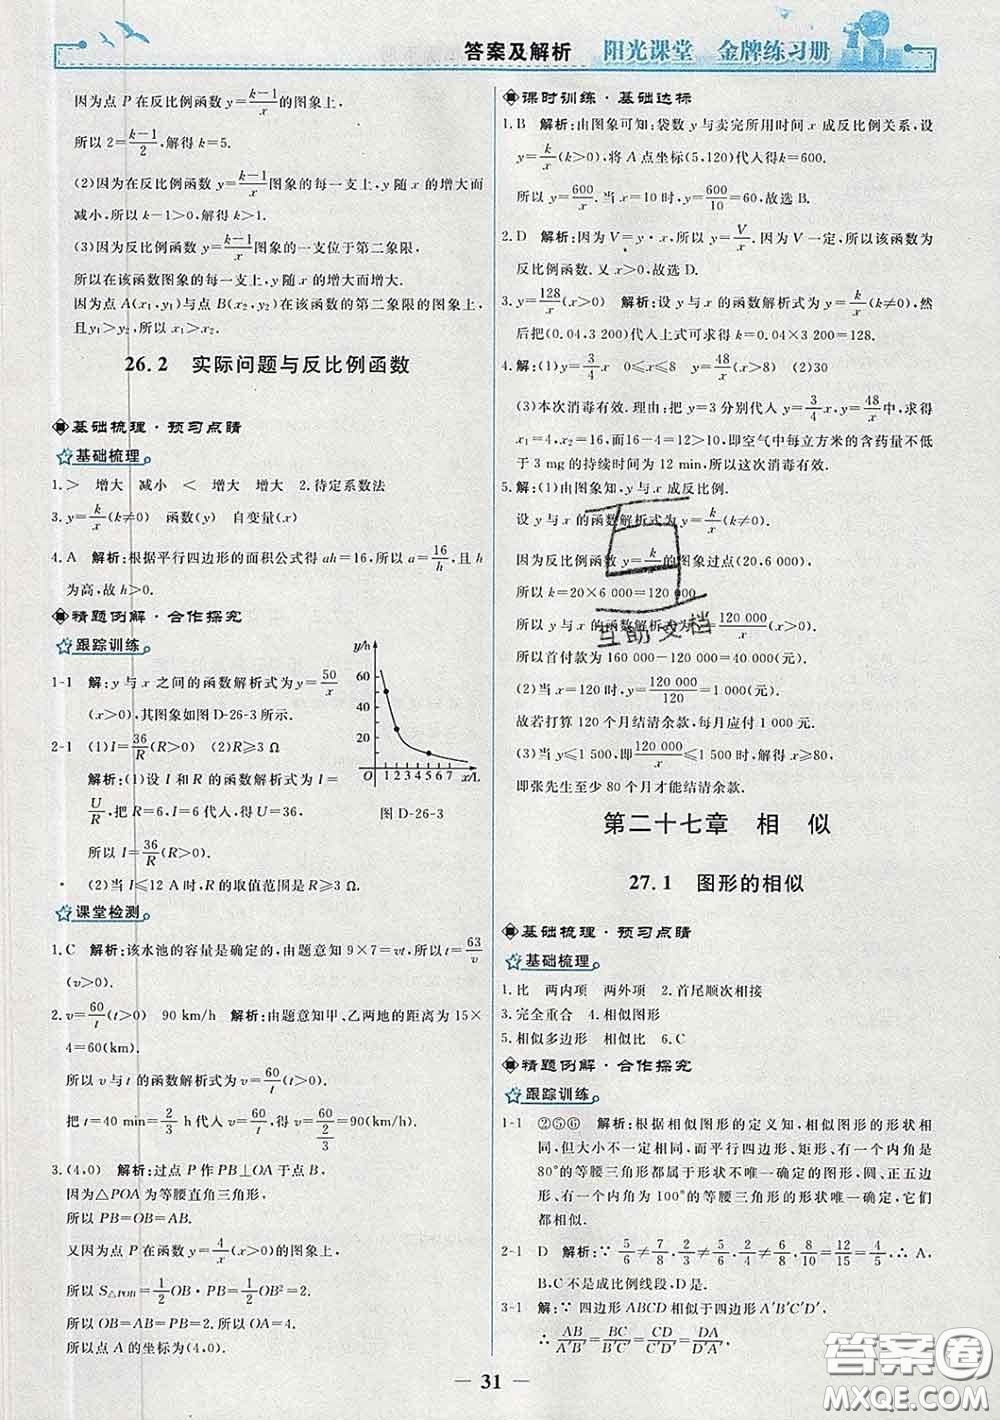 答案及解析 阳光课堂 金牌练习册
因为点 P 在反比例函数 y=(k-1)/x 的图象上,
所以 2=(k-1)/2,解得 k=5.
(2)因为在反比例函数 y=(k-1)/x 图象的每一支上,y 随 x 的增大而
减小,所以 k-1>0,解得 k>1.
(3)因为反比例函数 y=(k-1)/x 图象的一支位于第二象限,
所以在该函数图象的每一支上,y 随 x 的增大而增大.
因为点 A(x₁,y₁)与点 B(x₂,y₂)在该函数的第二象限的图象上,
且 y₁>y₂,所以 x₁>x₂.
26.2 实际问题与反比例函数
基础梳理·预习点睛
基础梳理
1.> 增大 减小 < 增大 增大 2.待定系数法
3.y=k/x(k≠0) 函数(y) 自变量(x)
4.A 解析:根据平行四边形的面积公式得 ah=16,所以 a=16/h,且 h
为高,故 h>0.
精题例解·合作探究
跟踪训练
1-1 解:y 与 x 之间的函数解析式为 y=50/x
(x>0),其图象如图 D-26-3 所示.
2-1 (1)I=36/R(R>0) (2)R≥3 Ω
解析:(1)设 I 和 R 的函数解析式为 I=
U/R,把 R=6,I=6 代人,得 U=36,
所以 I=36/R(R>0).
(2)当 I≤12 A 时,R 的取值范围是 R≥3 Ω.
y/h
60
50
40
30
20
10
O 1 2 3 4 5 6 7 8 x/L
图 D-26-3
课堂检测
1.C 解析:该水池的容量是确定的,由题意知 9×7=vt,所以 t=63/v
(v>0).
2.v=60/t(t>0) 90 km/h 解析:由题意知甲、乙两地的距离为 15×
4=60(km).
所以 v 与 t 的函数解析式为 v=60/t(t>0).
把 t=40 min=2/3 h 代人 v=60/t,得 v=60/(2/3)=90(km/h).
3.(4,0) 解析:过点 P 作 PB⊥OA 于点 B,
因为△POA 为等腰直角三角形,
所以 PB=OB=AB.
又因为点 P 在函数 y=4/x(x>0)的图象上,
所以 S△POB=1/2OB·PB=1/2OB²=2.
所以 OB=AB=PB=2,所以 OA=4.
所以点 A 的坐标为(4,0).
课时训练·基础达标
1.B 解析:由图象可知:袋数 y 与卖完所用时间 x 成反比例关系,设
y=k/x(k>0),将 A 点坐标(5,120)代人得 k=600.
所以 y=600/x.当 x=10 时,y=600/10=60,故选 B.
2.D 解析:因为 V=y·x,所以 y=V/x.因为 V 一定,所以该函数为
反比例函数.又 x>0,故选 D.
3.y=128/x(x>0) 解析:设 y 与 x 的函数解析式为 y=k/x(k≠0),然
后把(0.04,3 200)代人上式可求得 k=0.04×3 200=128.
4.解:(1)y=3/4x 0≤x≤8 y=48/x(x>8) (2)30
(3)本次消毒有效.理由:把 y=3 分别代人 y=3/4x,y=48/x,求得
x₁=4,x₂=16,而 16-4=12>10,即空气中每立方米的含药量不低
于 3 mg 的持续时间为 12 min,所以这次消毒有效.
5.解:(1)由图象知,y 与 x 成反比例.
设 y 与 x 的函数解析式为 y=k/x(k≠0).
因为反比例函数 y=k/x 的图象过点(20,6 000),
所以 k=20×6 000=120 000.
所以 y 与 x 的函数解析式为 y=120 000/x(x>0).
所以首付款为 160 000-120 000=40 000(元).
(2)当 x=120 时,y=120 000/120=1 000(元).
故若打算 120 个月结清余款,每月应付 1 000(元).
(3)当 y≤1 500,即 120 000/x≤1 500 时,解得 x≥80,
即张先生至少 80 个月才能结清余款.
第二十七章 相 似
27.1 图形的相似
基础梳理·预习点睛
基础梳理
1.比 两内项 两外项 2.首尾顺次相接
3.完全重合 4.相似图形
5.相似多边形 相似比 6.C
精题例解·合作探究
跟踪训练
1-1 ②⑤⑥ 解析:根据相似图形的定义知,相似图形的形状相
同,但大小不一定相同,而平行四边形、矩形、有一个内角为
80°的等腰三角形都属于形状不唯一确定的图形,圆、正五边
形、有一个内角为 100°的等腰三角形的形状唯一确定,它们
都相似.
2-1 D 解析:∵ 5/6≠7/8,2/3≠7/8,2/3≠5/6,6/8≠2/4,8/10=12/15=4/5,∴ A,
B,C 不是成比例线段,D 是.
3-1 解:∵ 四边形 ABCD 相似于四边形 A′B′C′D′,
∴ AB/A′B′=BC/B′C′=CD/C′D′=DA/D′A′,
互助文档
答案圈
MXQE.COM
— 31 —